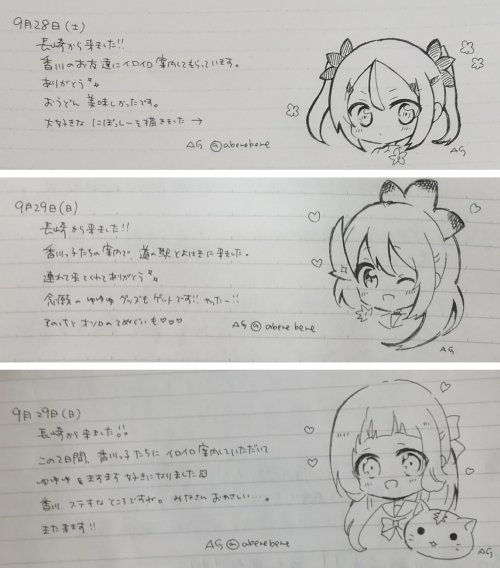 9月28日(土)
長崎から来ました!!
香川のお友達にイロイロ案内してもらっています。
ありがとう
おうどん 美味しかったです。
大好きな にぼっしーを描きました →
AG @aberebere
AG
9月29日(日)
長崎から来ました!!
香川っ子たちの案内で、道の駅とよはまに来ました。
連れて来てくれてありがとう
念願の ゆゆゆ グッズも ゲットです!! やったー!!
そのっちと オソロの てぬぐいも♡♡♡
AG @aberebere
AG
9月29日(日)
長崎から来ました!!
この2日間、香川っ子たちに イロイロ案内していただいて
ゆゆゆをますます好きになりました
香川 ステキなところですが。 みなさん おやさしい…。
また来ます!!
AG @aberebere
AG